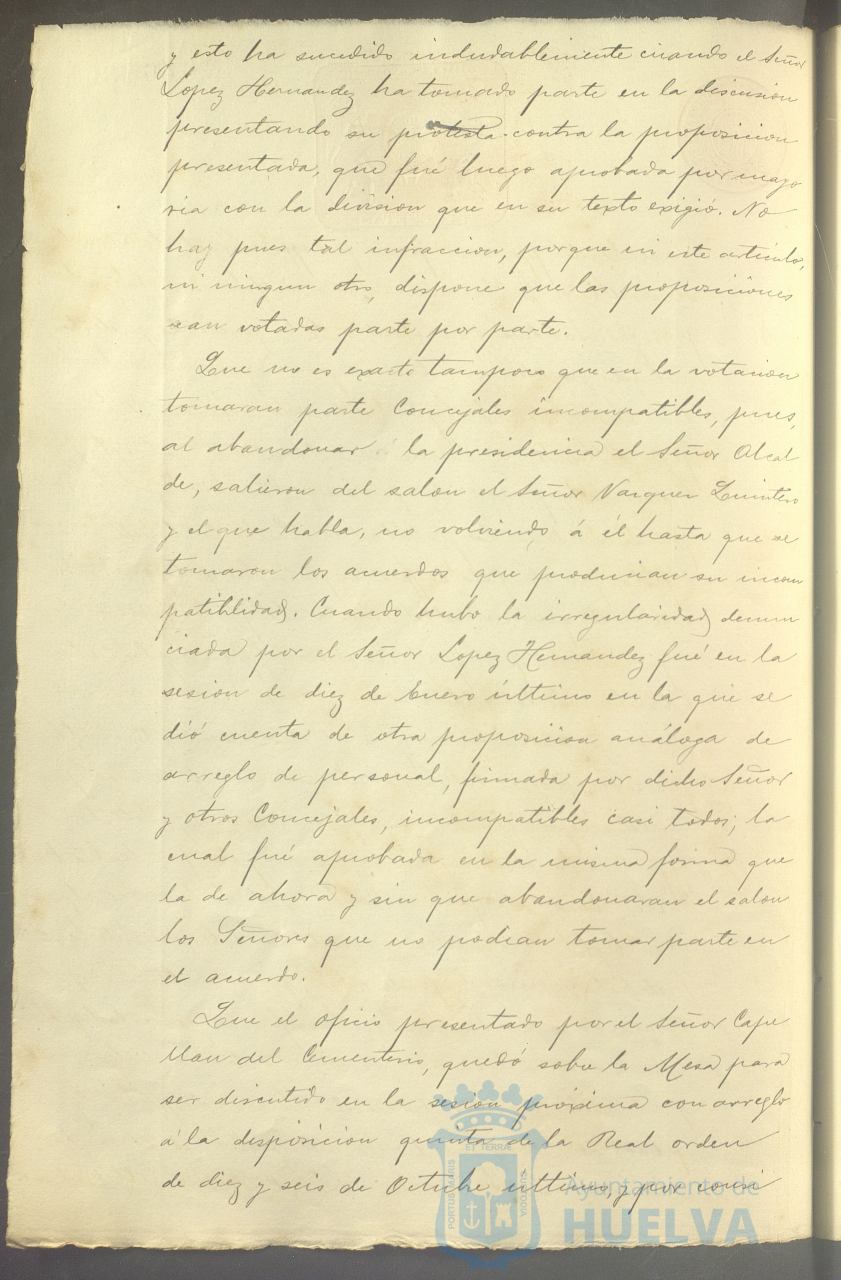 y esto ha sucedido indudablemente cuando el Señor
Lopez Hernandez ha tomado parte en la discusion
presentando su protesta contra la proposicion
presentada, que fué luego aprobada por mayo
ria con la division que en su texto exigió. No
hay pues tal infraccion, porque ni este artículo,
ni ningun otro, dispone que las proposiciones
sean votadas parte por parte.
Que no es exacto tampoco que en la votacion
tomaran parte Concejales incompatibles, pues,
al abandonar la presidencia el Señor Alcal
de, salieron del salon el Señor Vazquez Quintero
y el que habla, no volviendo á él hasta que se
tomaron los acuerdos que producian su incom
patibilidad. Cuando hubo la irregularidad denun
ciada por el Señor Lopez Hernandez fué en la
sesion de diez de Enero último en la que se
dió cuenta de otra proposicion análoga de
arreglo de personal, firmada por dicho Señor
y otros Concejales, incompatibles casi todos, la
cual fué aprobada en la misma forma que
la de ahora y sin que abandonaran el salon
los Señores que no podian tomar parte en
el acuerdo.
Que el oficio presentado por el Señor Cape
llan del Cementerio, quedó sobre la Mesa para
ser discutido en la sesion próxima con arreglo
á la disposicion quinta de la Real orden
de diez y seis de Octubre último, y por consi
PORTUS MARIS
ET TERRÆ
CUSTODIA
Ayuntamiento de
HUELVA